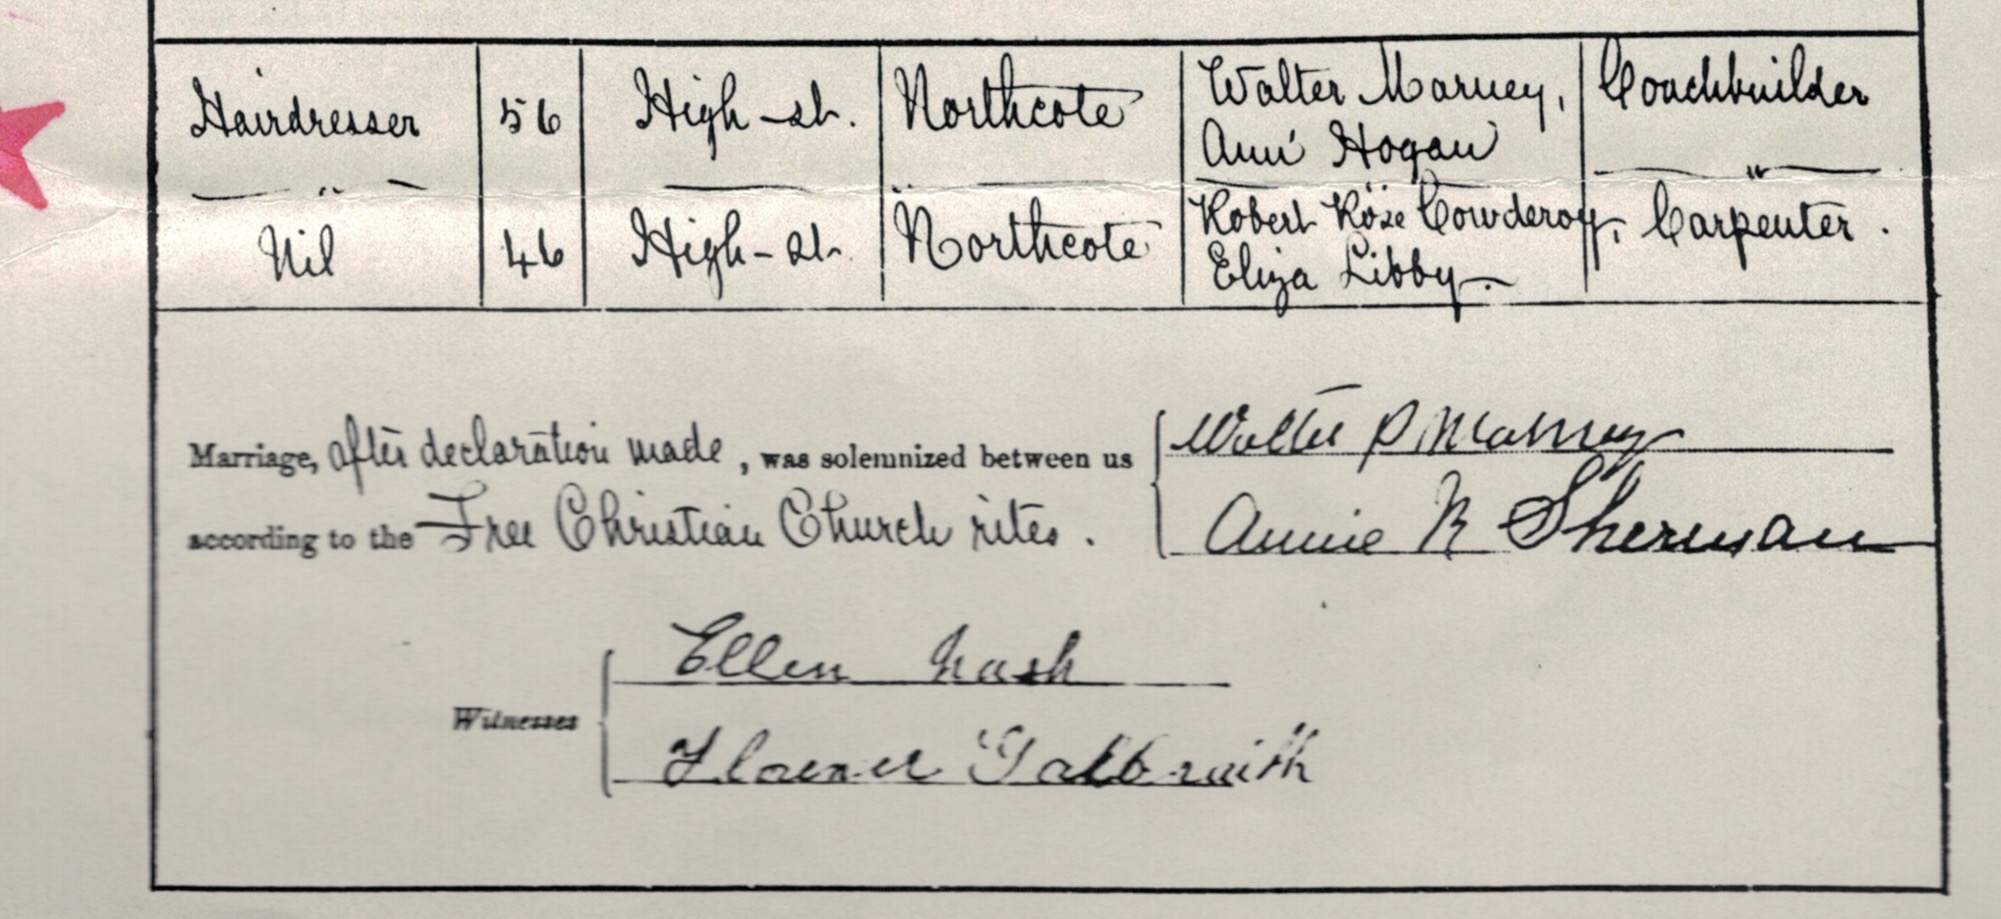 Hairdresser 56 High-st. Northcote Walter Marney, Coachbuilder
Ann Hogan
" " "
Nil 46 High-st. Northcote Robert Rose Cowderoy, Carpenter.
Eliza Libby.
Marriage, after declaration made, was solemnized between us Walter P Marney
according to the Free Christian Church rites. Annie R Sherman
Ellen Nash
Witnesses
Florence Galbraith